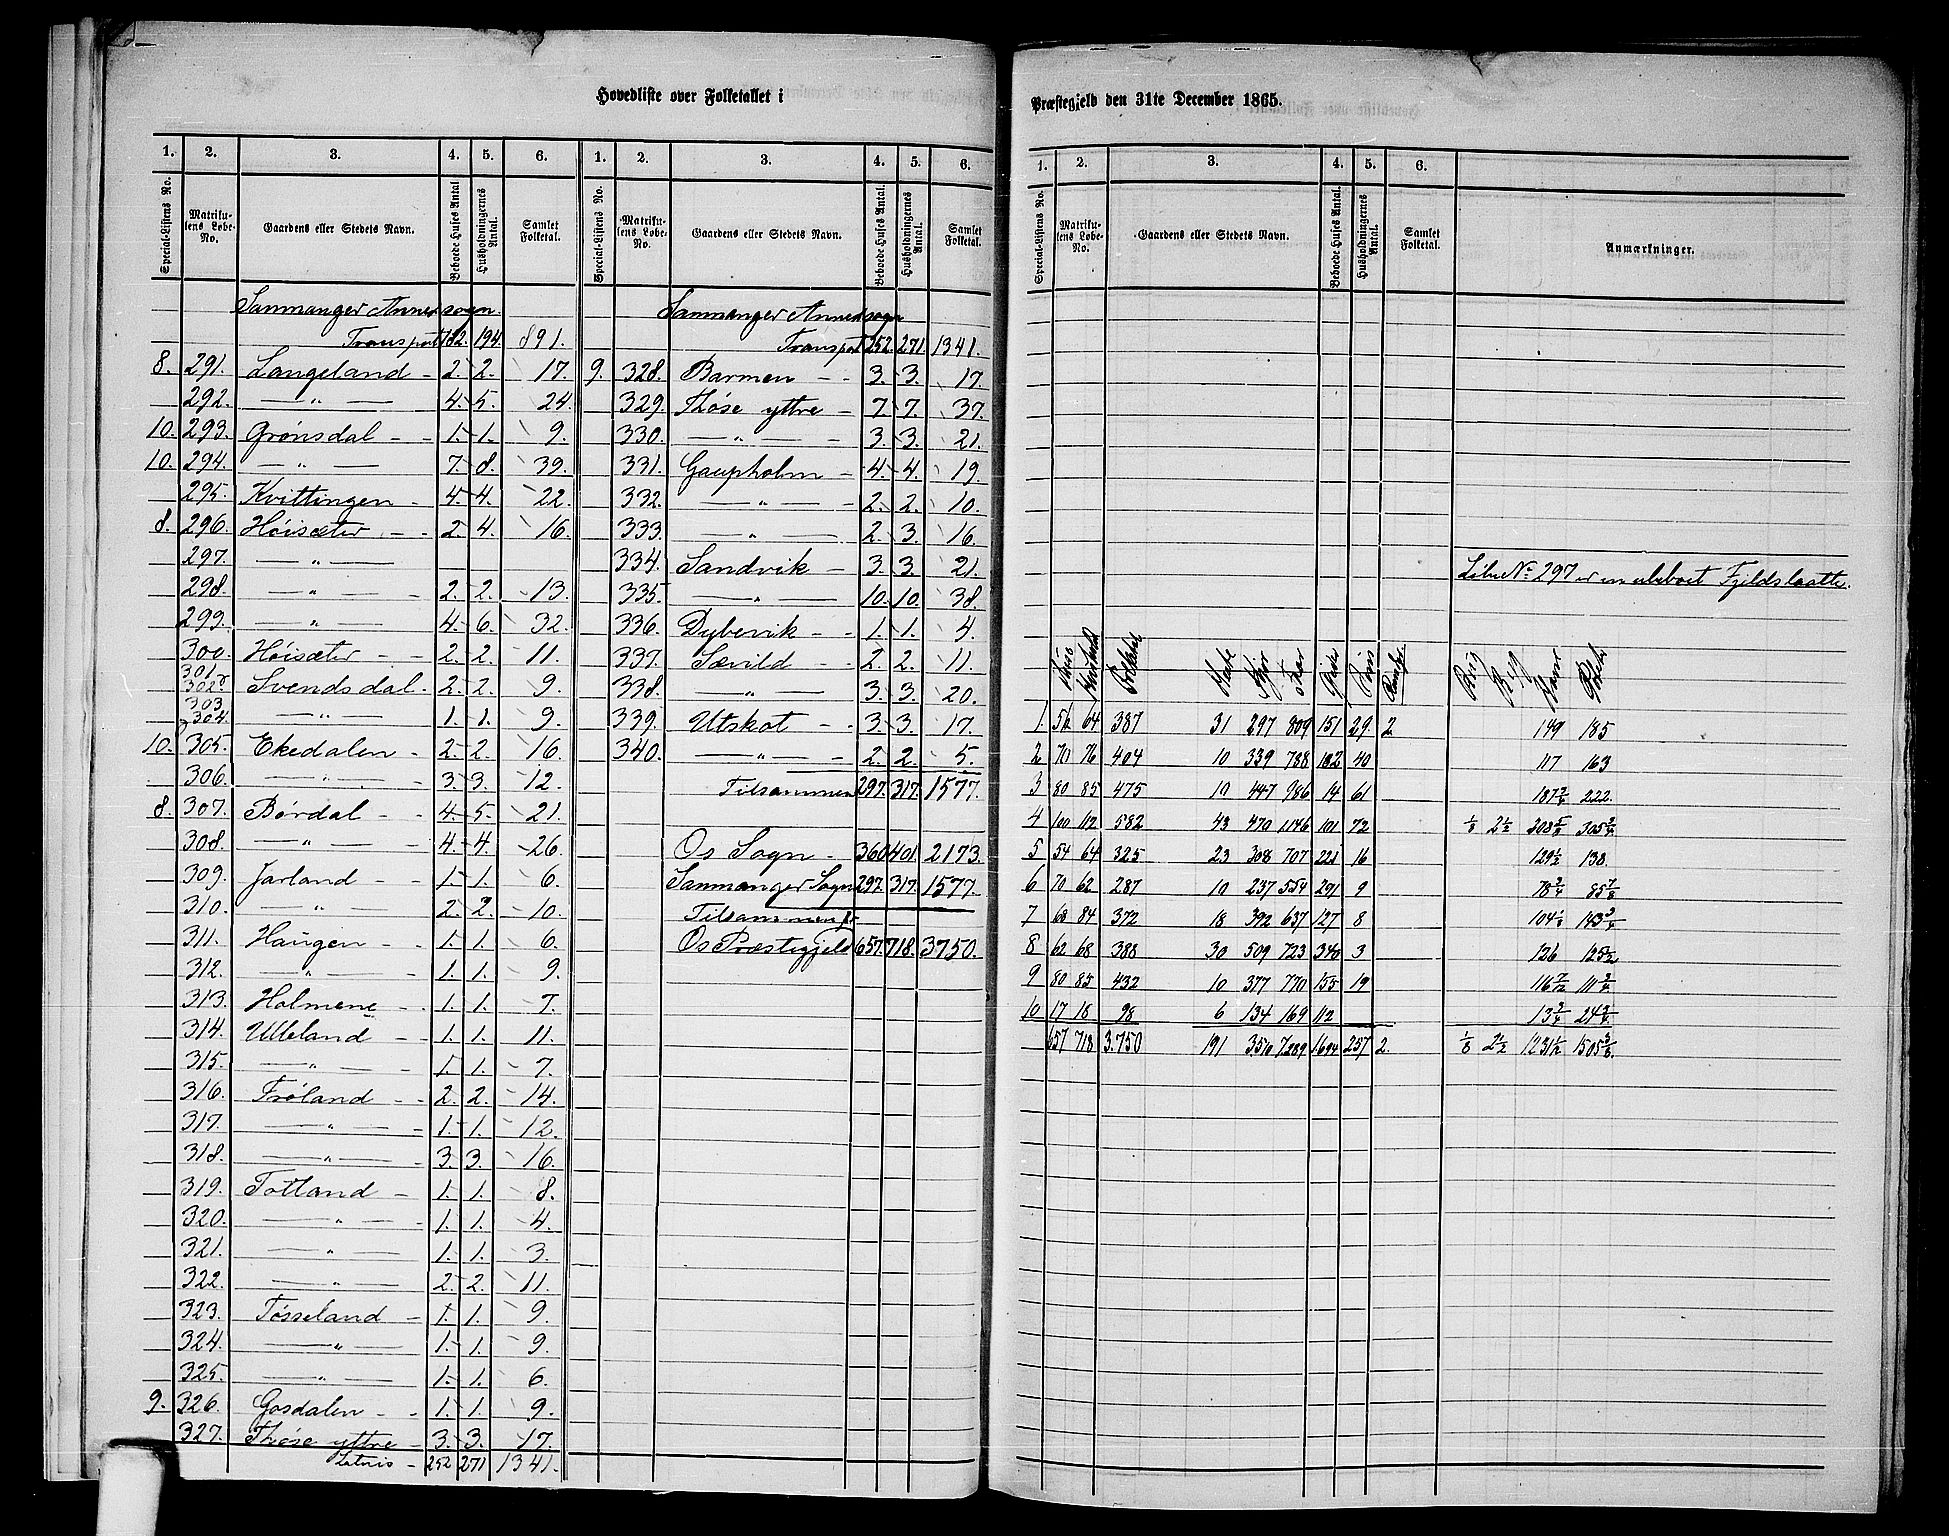 Hovedliste over Folketallet i
1. 2. 3. 4. 5. 6. 1. 2. 3. 4. 5. 6.
Special-Listens No. Matrikulens Løbe-No. Gaardens eller Stedets Navn. Beboede Huses Antal Husholdningernes Antal. Samlet Folketal. Special-Listens No. Matrikulens Løbe-No. Gaardens eller Stedets Navn. Beboede Huses Antal. Husholdningernes Antal. Samlet Folketal.
Sammanger Annexsogn
Transport 182. 194. 891.
8. 291. Langeland - 2. 2. 17.
292. —„— 4. 5. 24.
10. 293. Grønsdal - - 1. 1. 9.
10. 294. —„— 7. 8. 39.
295. Kvittingen - 4. 4. 22.
8. 296. Høisæter - - 2. 4. 16.
297. —„—
298. —„— 2. 2. 13.
299. —„— 4. 6. 32.
300. Høisæter - - 2. 2. 11.
301. 302. Svendsdal - 2. 2. 9.
303. 304. —„— 1. 1. 9.
10. 305. Ekedalen - 2. 2. 16.
306. —„— 3. 3. 12.
8. 307. Børdal - - 4. 5. 21.
308. —„— 4. 4. 26.
309. Jarland - - 1. 1. 6.
310. —„— 2. 2. 10.
311. Haugen - - 1. 1. 6.
312. —„— 1. 1. 9.
313. Holmene - - 1. 1. 7.
314. Ulleland - 1. 1. 11.
315. —„— 1. 1. 7.
316. Frøland - - 2. 2. 14.
317. —„— 1. 1. 12.
318. —„— 3. 3. 16.
319. Totland - 1. 1. 8.
320. —„— 1. 1. 4.
321. —„— 1. 1. 3.
322. —„— 2. 2. 11.
323. Tøsseland - 1. 1. 9.
324. —„— 1. 1. 9.
325. —„— 1. 1. 6.
9. 326. Gosdalen - - 1. 1. 9.
327. Thøse yttre - 3. 3. 17.
Latris - 252 271 1341.
Sammanger Annexsogn
Transport 252. 271. 1341.
9. 328. Barmen - - 3. 3. 17.
329. Thøse yttre - 7. 7. 37.
330. —„— 3. 3. 21.
331. Gaupholm - 4. 4. 19.
332. —„— 2. 2. 10.
333. —„— 2. 3. 16.
334. Sandvik - 3. 3. 21.
335. —„— 10. 10. 38.
336. Dybevik - - 1. 1. 4.
337. Sævild - - 2. 2. 11.
338. —„— 3. 3. 20.
339. Utskot - - 3. 3. 17.
340. —„— 2. 2. 5.
Tilsammen 297. 317. 1577.
Os Sogn - 360 401. 2173.
Sammanger Sogn 297. 317. 1577.
Tilsammen f.
Os Præstegjeld 657. 718. 3750.
Præstegjeld den 31te December 1865.
1. 2. 3. 4. 5. 6.
Special-Listens No. Matrikulens Løbe-No. Gaardens eller Stedets Navn. Beboede Huses Antal. Husholdningernes Antal. Samlet Folketal. Anmærkninger.
Løbe No 297 er en ubeboet Fjeldslaatte.
Huse Folketal Heste Faar Svin Byg Rug Havre
1. 56 64 387 31 297 809 151 29. 2 149 185
2 70 76 404 10 339 788 182 40 117 163
3 80 85 475 10 447 986 14 61 187 3/4 222.
4 100 112 582 43 470 1146 101 72 1/8 2 1/2 305 3/4
5 54 64 325 23 308 707 221 16 129 1/2 138.
6 70 62 287 10 237 554 291 9 78 3/4 85 7/8
7 68 84 372 18 392 637 127 8 104 1/2 143 3/4
8 62 68 388 30 509 723 340 3 126 125 1/2
9 80 85 432 10 377 770 155 19 111 3/4
10 17 18 98 6 134 169 112 13 3/4 24 3/4
657 718 3.750 191 3510 7289 1694 257 2. 1/8 2 1/2 1231 1/2 1505 3/8